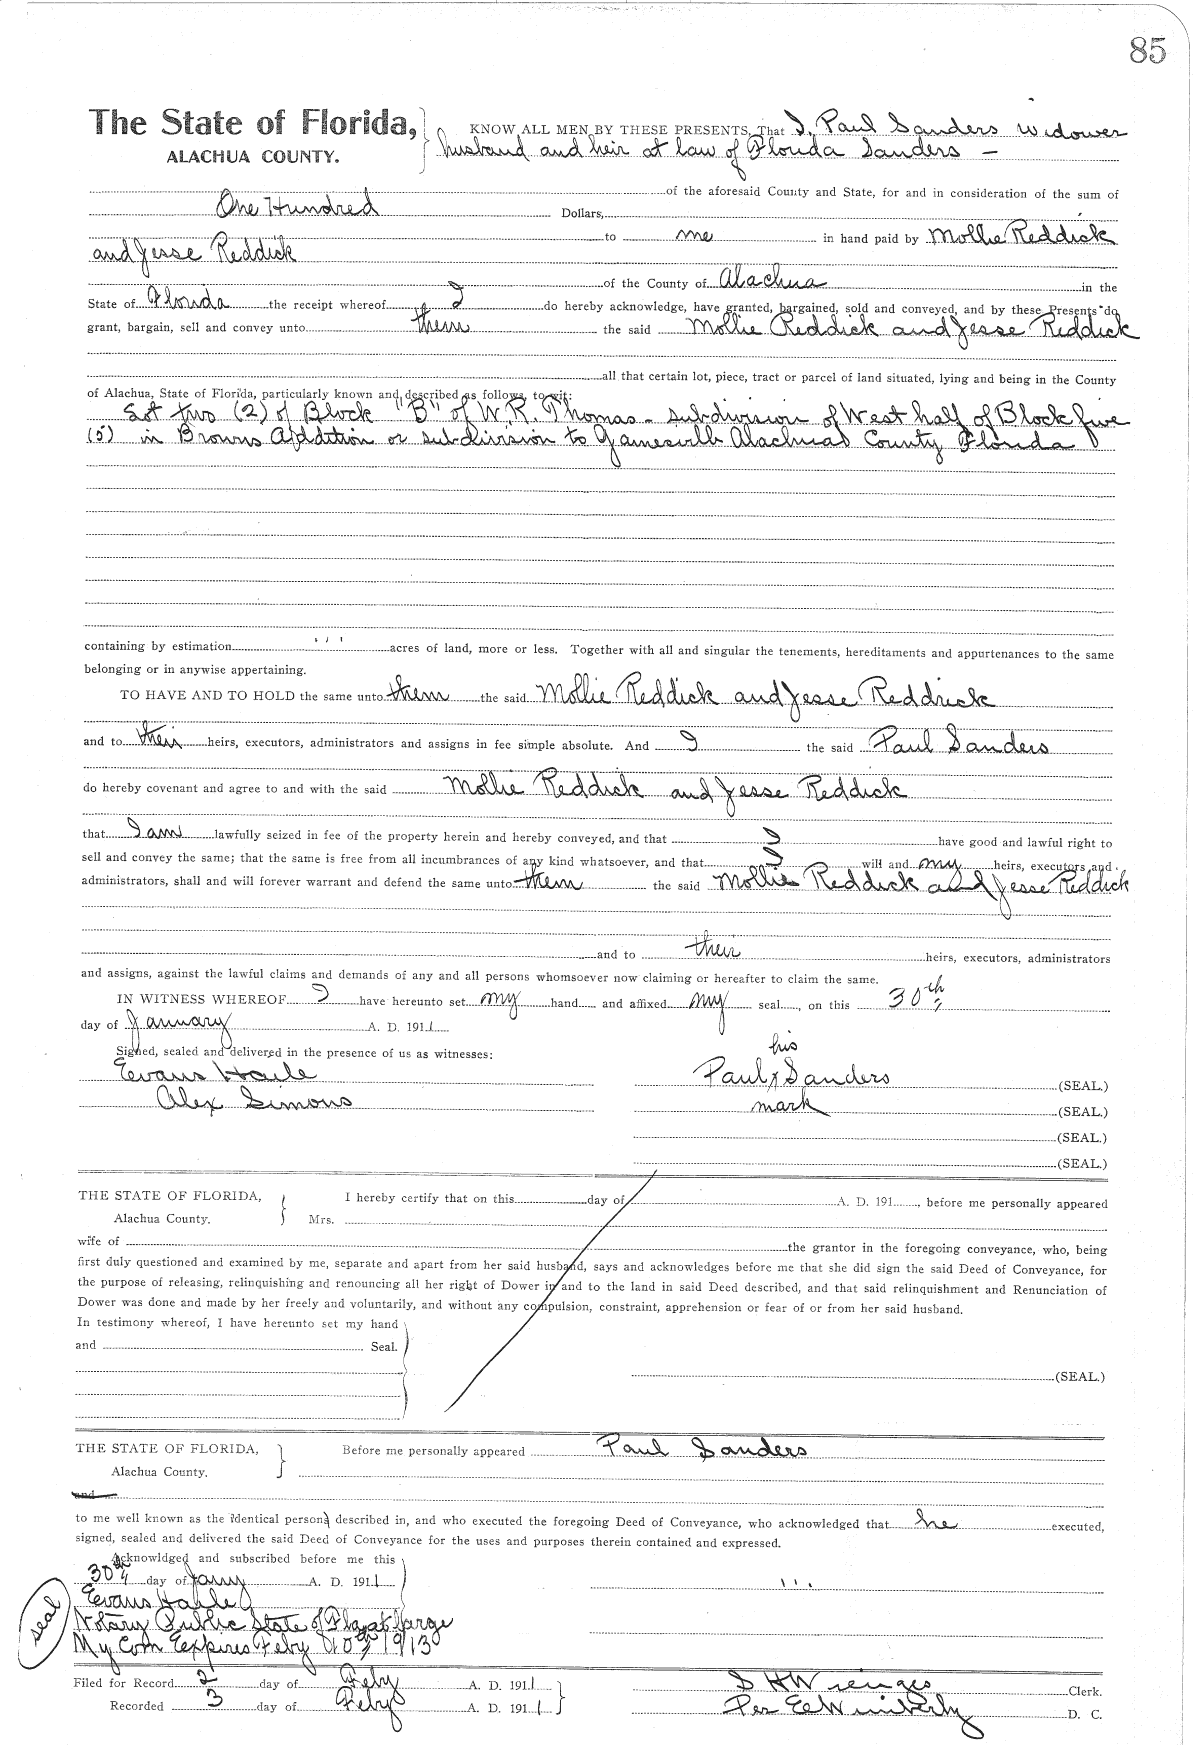 85
The State of Florida, KNOW ALL MEN BY THESE PRESENTS, That I, Paul Sanders widower
ALACHUA COUNTY. husband and heir at law of Florida Sanders —
of the aforesaid County and State, for and in consideration of the sum of
One Hundred Dollars,
to me in hand paid by Mollie Reddick
and Jesse Reddick
of the County of Alachua in the
State of Florida the receipt whereof I do hereby acknowledge, have granted, bargained, sold and conveyed, and by these Presents do
grant, bargain, sell and convey unto them the said Mollie Reddick and Jesse Reddick
all that certain lot, piece, tract or parcel of land situated, lying and being in the County
of Alachua, State of Florida, particularly known and described as follows, to-wit:
Lot two (2) of Block "B" of W. R. Thomas - subdivision of West half of Block five
(5) in Browns Addition or subdivision to Gainesville Alachua County Florida
containing by estimation ' ' ' acres of land, more or less. Together with all and singular the tenements, hereditaments and appurtenances to the same
belonging or in anywise appertaining.
TO HAVE AND TO HOLD the same unto them the said Mollie Reddick and Jesse Reddrick
and to their heirs, executors, administrators and assigns in fee simple absolute. And I the said Paul Sanders
do hereby covenant and agree to and with the said Mollie Reddick and Jesse Reddick
that I am lawfully seized in fee of the property herein and hereby conveyed, and that I have good and lawful right to
sell and convey the same; that the same is free from all incumbrances of any kind whatsoever, and that I will and my heirs, executors and
administrators, shall and will forever warrant and defend the same unto them the said Mollie Reddick and Jesse Reddick
and to their heirs, executors, administrators
and assigns, against the lawful claims and demands of any and all persons whomsoever now claiming or hereafter to claim the same.
IN WITNESS WHEREOF I have hereunto set my hand and affixed my seal, on this 30th
day of January A. D. 1911
Signed, sealed and delivered in the presence of us as witnesses: his
Evans Haile Paul x Sanders (SEAL.)
Alex Simons mark (SEAL.)
(SEAL.)
(SEAL.)
THE STATE OF FLORIDA, I hereby certify that on this day of A. D. 191 , before me personally appeared
Alachua County. Mrs.
wife of the grantor in the foregoing conveyance, who, being
first duly questioned and examined by me, separate and apart from her said husband, says and acknowledges before me that she did sign the said Deed of Conveyance, for
the purpose of releasing, relinquishing and renouncing all her right of Dower in and to the land in said Deed described, and that said relinquishment and Renunciation of
Dower was done and made by her freely and voluntarily, and without any compulsion, constraint, apprehension or fear of or from her said husband.
In testimony whereof, I have hereunto set my hand
and Seal.
(SEAL.)
THE STATE OF FLORIDA, Before me personally appeared Paul Sanders
Alachua County.
and
to me well known as the identical person described in, and who executed the foregoing Deed of Conveyance, who acknowledged that he executed,
signed, sealed and delivered the said Deed of Conveyance for the uses and purposes therein contained and expressed.
Acknowldged and subscribed before me this
30th day of Jany A. D. 1911 ' ' '
Evans Haile
seal Notary Public State of Fla at large
My Com Expires Feby 10 1913
Filed for Record 2 day of Feby A. D. 1911 S H Wienges Clerk.
Recorded 3 day of Feby A. D. 1911 Per E Wimberly D. C.